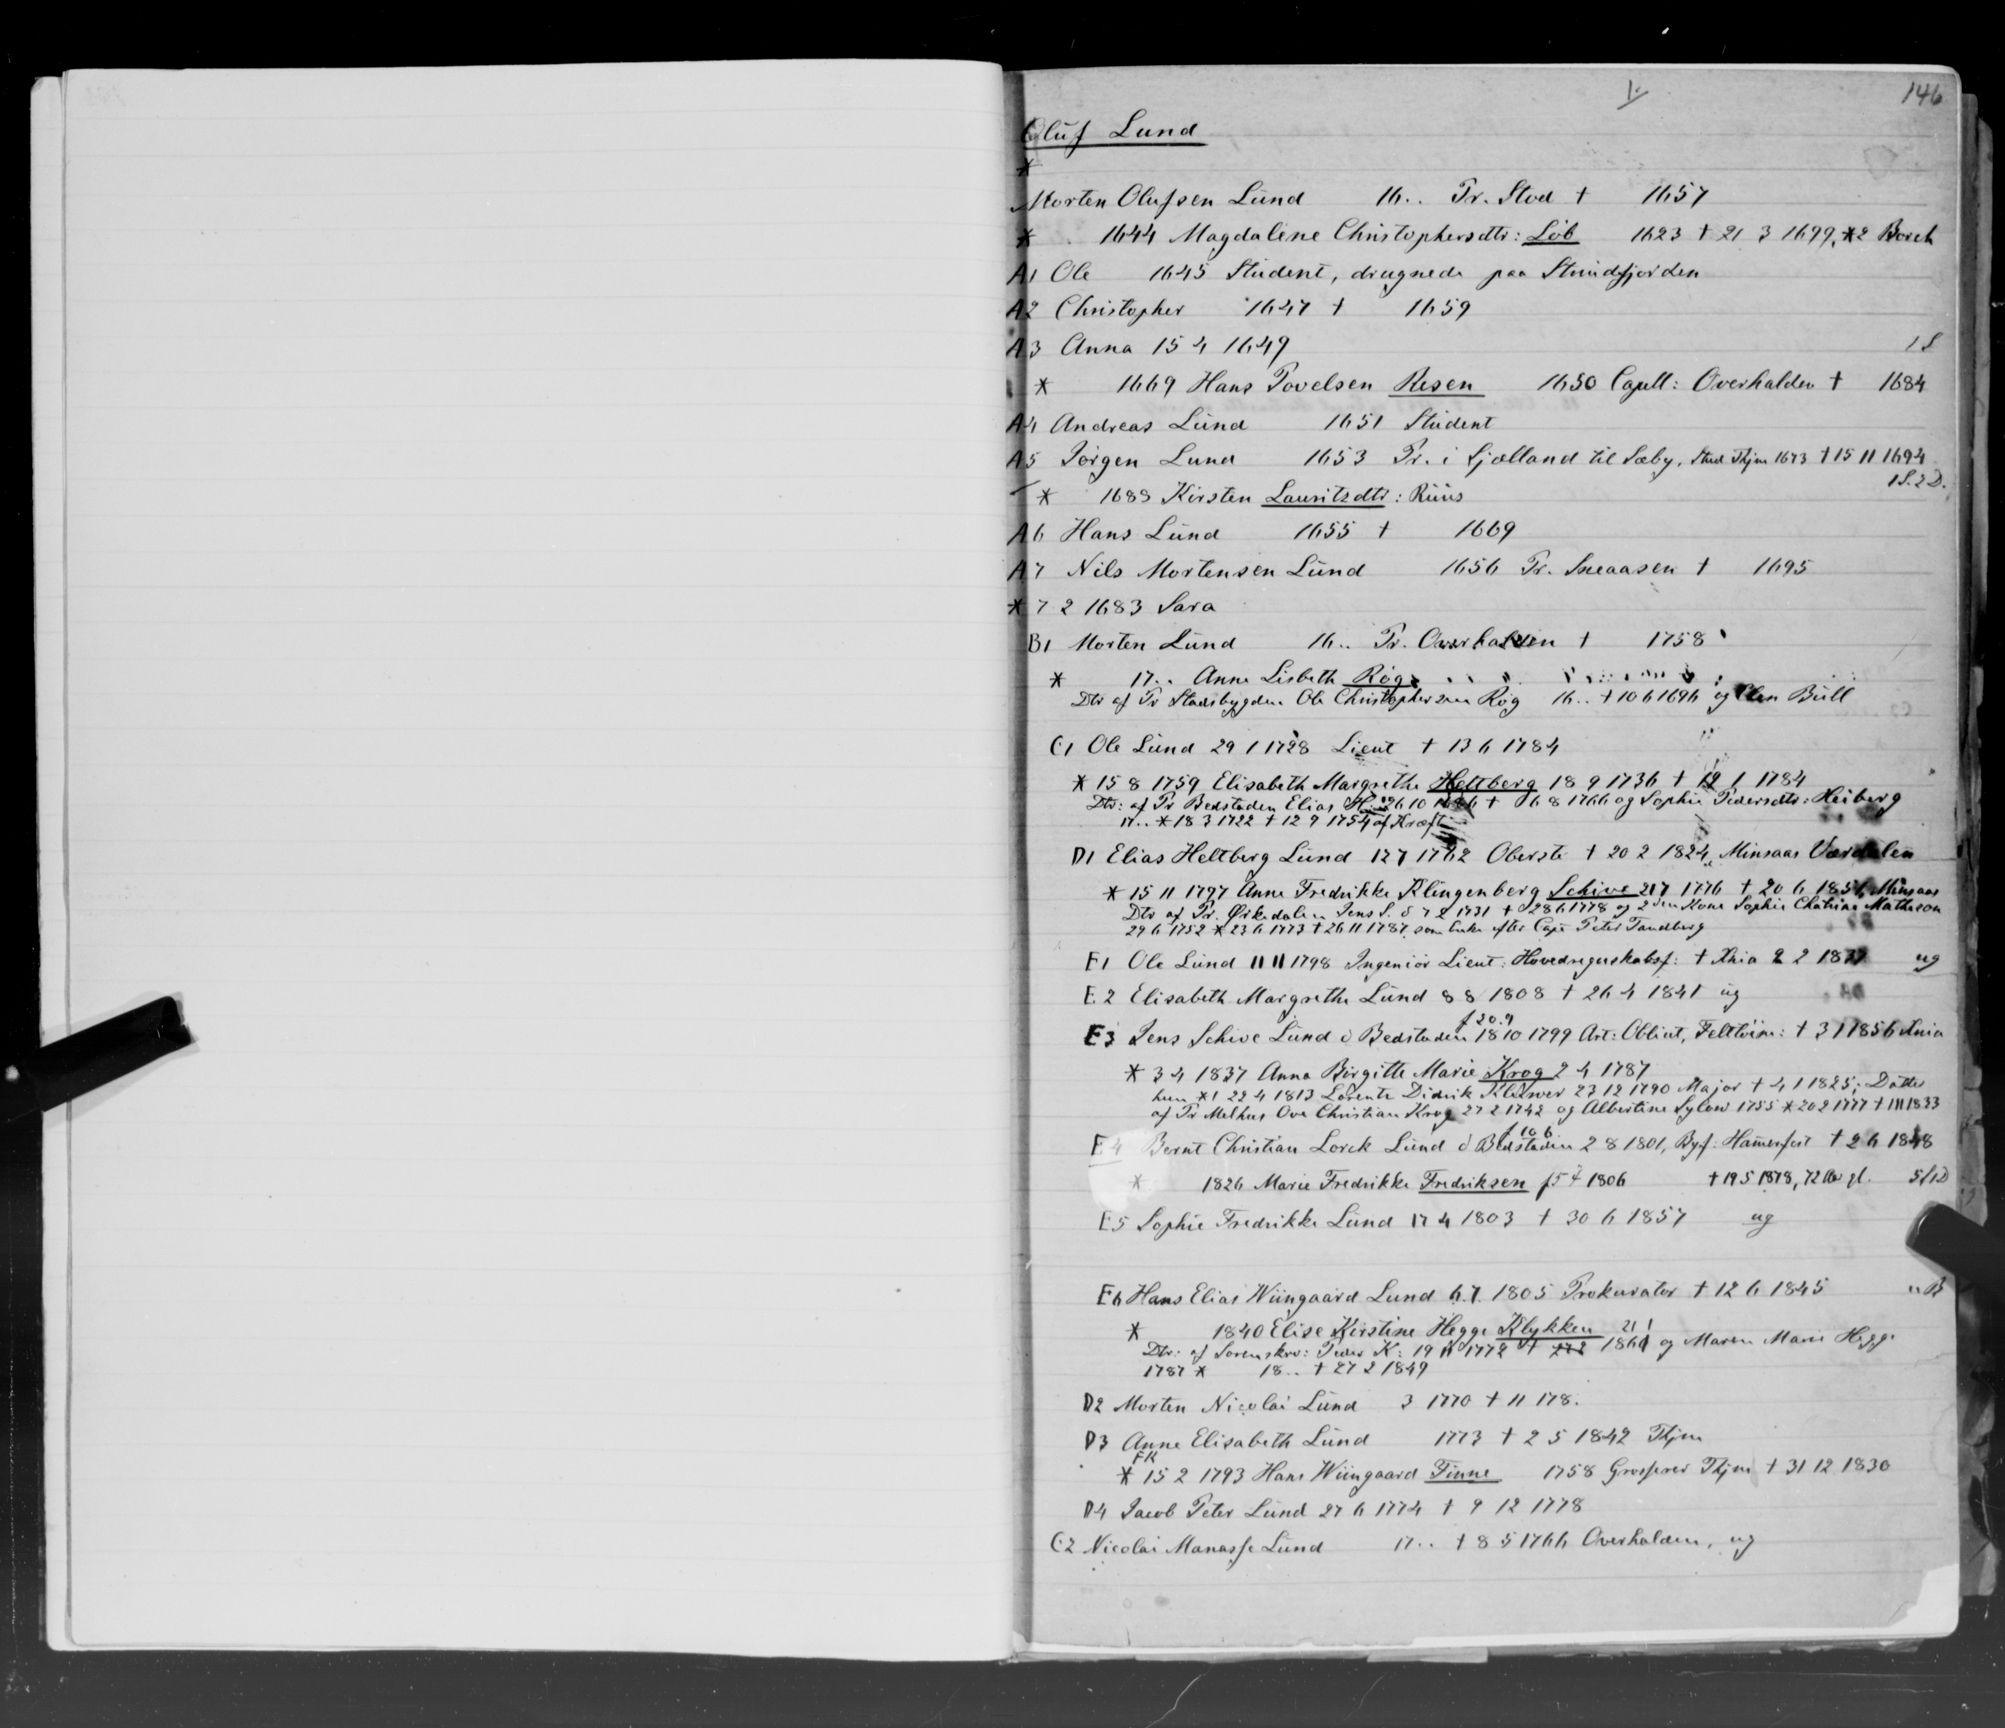 146
Oluf Lund
*
Morten Olufsen Lund 16.. Pr. Stod † 1657
* 1644 Magdalene Christophersdtr: Løb 1623 † 21 3 1699, *2 Borch
A1 Ole 1645 Student, drugnede paa
A2 Christopher 1647 † 1659
A3 Anna 15 4 1649 1 S
* 1669 Hans Povelsen Resen 1650 Capell: Overhalden † 1684
A4 Andreas Lund 1651 Student
A5 Jørgen Lund 1653 Pr. i Sjælland til Sæby, Stud Thjm 1673 † 15 11 1694
1S. 2D.
* 1688 Kirsten Lauritzdtr: Ruus
A6 Hans Lund 1655 † 1669
A7 Nils Mortensen Lund 1656 Pr. Sneaasen † 1695
* 7 2 1683 Sara
B1 Morten Lund 16.. Pr. Overhalden † 1758
* 17.. Anne Lisbeth Røg
Dtr af Pr Stadsbygden Ole Christophersen Røg 16.. † 10 6 1696 og Elen Bull
C1 Ole Lund 29 1 1728 Lieut † 13 6 1784
* 15 8 1759 Elisabeth Margrethe Heltberg 18 9 1736 † 12 1 1784
Dtr: af Pr Bedstaden Elias H. 26 10 1686 † 6 8 1766 og Sophie Pedersdtr: Heiberg
17.. * 18 3 1722 † 12 9 1754 af Kræft
D1 Elias Heltberg Lund 12 7 1762 Oberste † 20 2 1824, Minsaas Værdalen
* 15 11 1797 Anne Fredrikke Klingenberg Schive 21 7 1776 † 20 6 1851 Minsaas
Dtr af Pr. Ørkedalen Jens S. d 7 2 1731 † 28 6 1778 og 2den Kone Sophie Chatrine Matheson
29 6 1752 * 23 6 1773 † 26 11 1787, som Enke efter Capt Peter Tandberg
E1 Ole Lund 11 11 1798 Ingeniør Lieut: Hovedregnskabsf: † Xnia 2 2 18 ug
E2 Elisabeth Margrethe Lund 8 8 1808 † 26 4 1841 ug
f 20.9
E3 Jens Schive Lund d Bedstaden 18 10 1799 Art: Oblieut, Felttøim: † 3 1 1856 Xnia
* 3 4 1837 Anna Birgitte Marie Krog 2 4 1787
hun *1 22 4 1813 Lorentz Didrik Klüwer 23 12 1790 Major † 4 1 1825; Datter
af Pr Melhus Ove Christian Krog 27 2 1742 og Albertine Sylow 1755 * 20 2 1777 † 1 11 1833
f 10 6
E4 Bernt Christian Lorck Lund d Bedstaden 2 8 1801, Byf: Hamerfest † 2 6 1848
* 1826 Marie Fredrikke Fredriksen f 5 7 1806 † 19 5 1878, 72 Aar gl. 5/1D
E5 Sophie Fredrikke Lund 17 4 1803 † 30 6 1857 ug
E6 Hans Elias Wiingaard Lund 6.7. 1805 Prokurator † 12 6 1845 u B
* 1840 Elise Kirstine Hegge Klykken
21 1
Dtr: af Sorenskrv: Peder K: 19 11 1772 † 27 2 1861 og Maren Marie Hegge
1787 * 18.. † 27 2 1849
D2 Morten Nicolai Lund 3 1770 † 11 178.
D3 Anne Elisabeth Lund 1773 † 2 5 1842 Thjm
FK
* 15 2 1793 Hans Wiingaard Finne 1758 Grosserer Thjm † 31 12 1830
D4 Jacob Peter Lund 27 6 1774 † 9 12 1778
C2 Nicolai Manasse Lund 17.. † 8 5 1766 Overhalden, ug